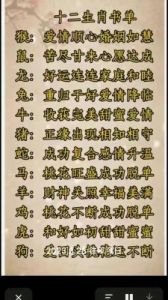 十二生肖书单
猴：爱情顺心婚姻如慧
鼠：苦尽甘来心愿达成
龙：好运连连家庭和睦
兔：重归于好爱情降临
牛：收获完美甜甜蜜蜜
猪：正缘出现相知相守
蛇：成功复合感情升温
马：桃花旺盛成功脱单
羊：财神关照幸福美满
鸡：桃花不断成功脱单
虎：和好如初甜甜蜜蜜
狗：爱回头桃花旺